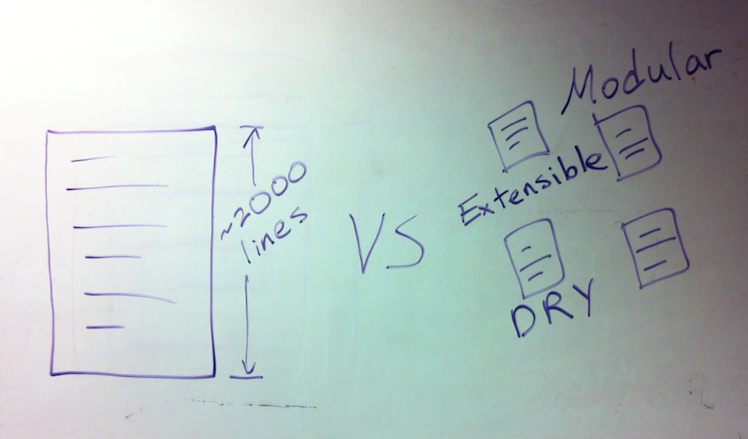 ~2000
lines
VS
Modular
Extensible
DRY